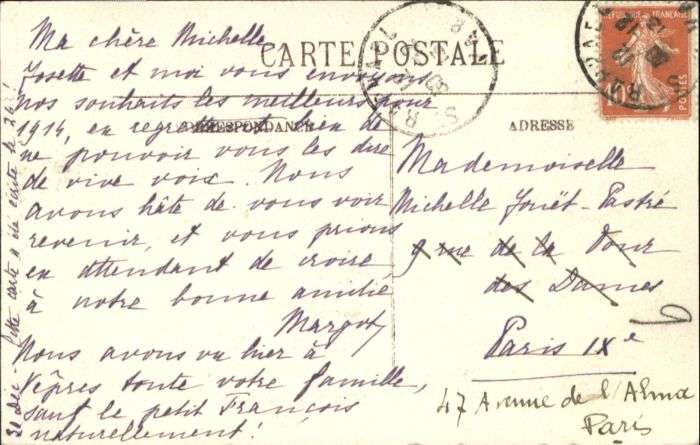 Ma chère Michelle
CARTE POSTALE
Josette et moi vous envoyons
nos souhaits les meilleurs pour
1914, en regrettant bien de
CORRESPONDANCE
ne pouvoir vous les dire
de vive voix. Nous
avons hâte de vous voir
revenir, et vous prions
en attendant de croire
à notre bonne amitié,
Margot
Nous avons vu hier à
Vêpres toute votre famille,
sauf le petit François
naturellement!
31 Déc - Cette carte a été écrite le 26!
REPUBLIQUE FRANÇAISE
10
POSTES
ADRESSE
Mademoiselle
Michelle Jouët-Pastré
9 rue de la Tour
des Dames
Paris IXe
6
47 Avenue de l'Alma
Paris